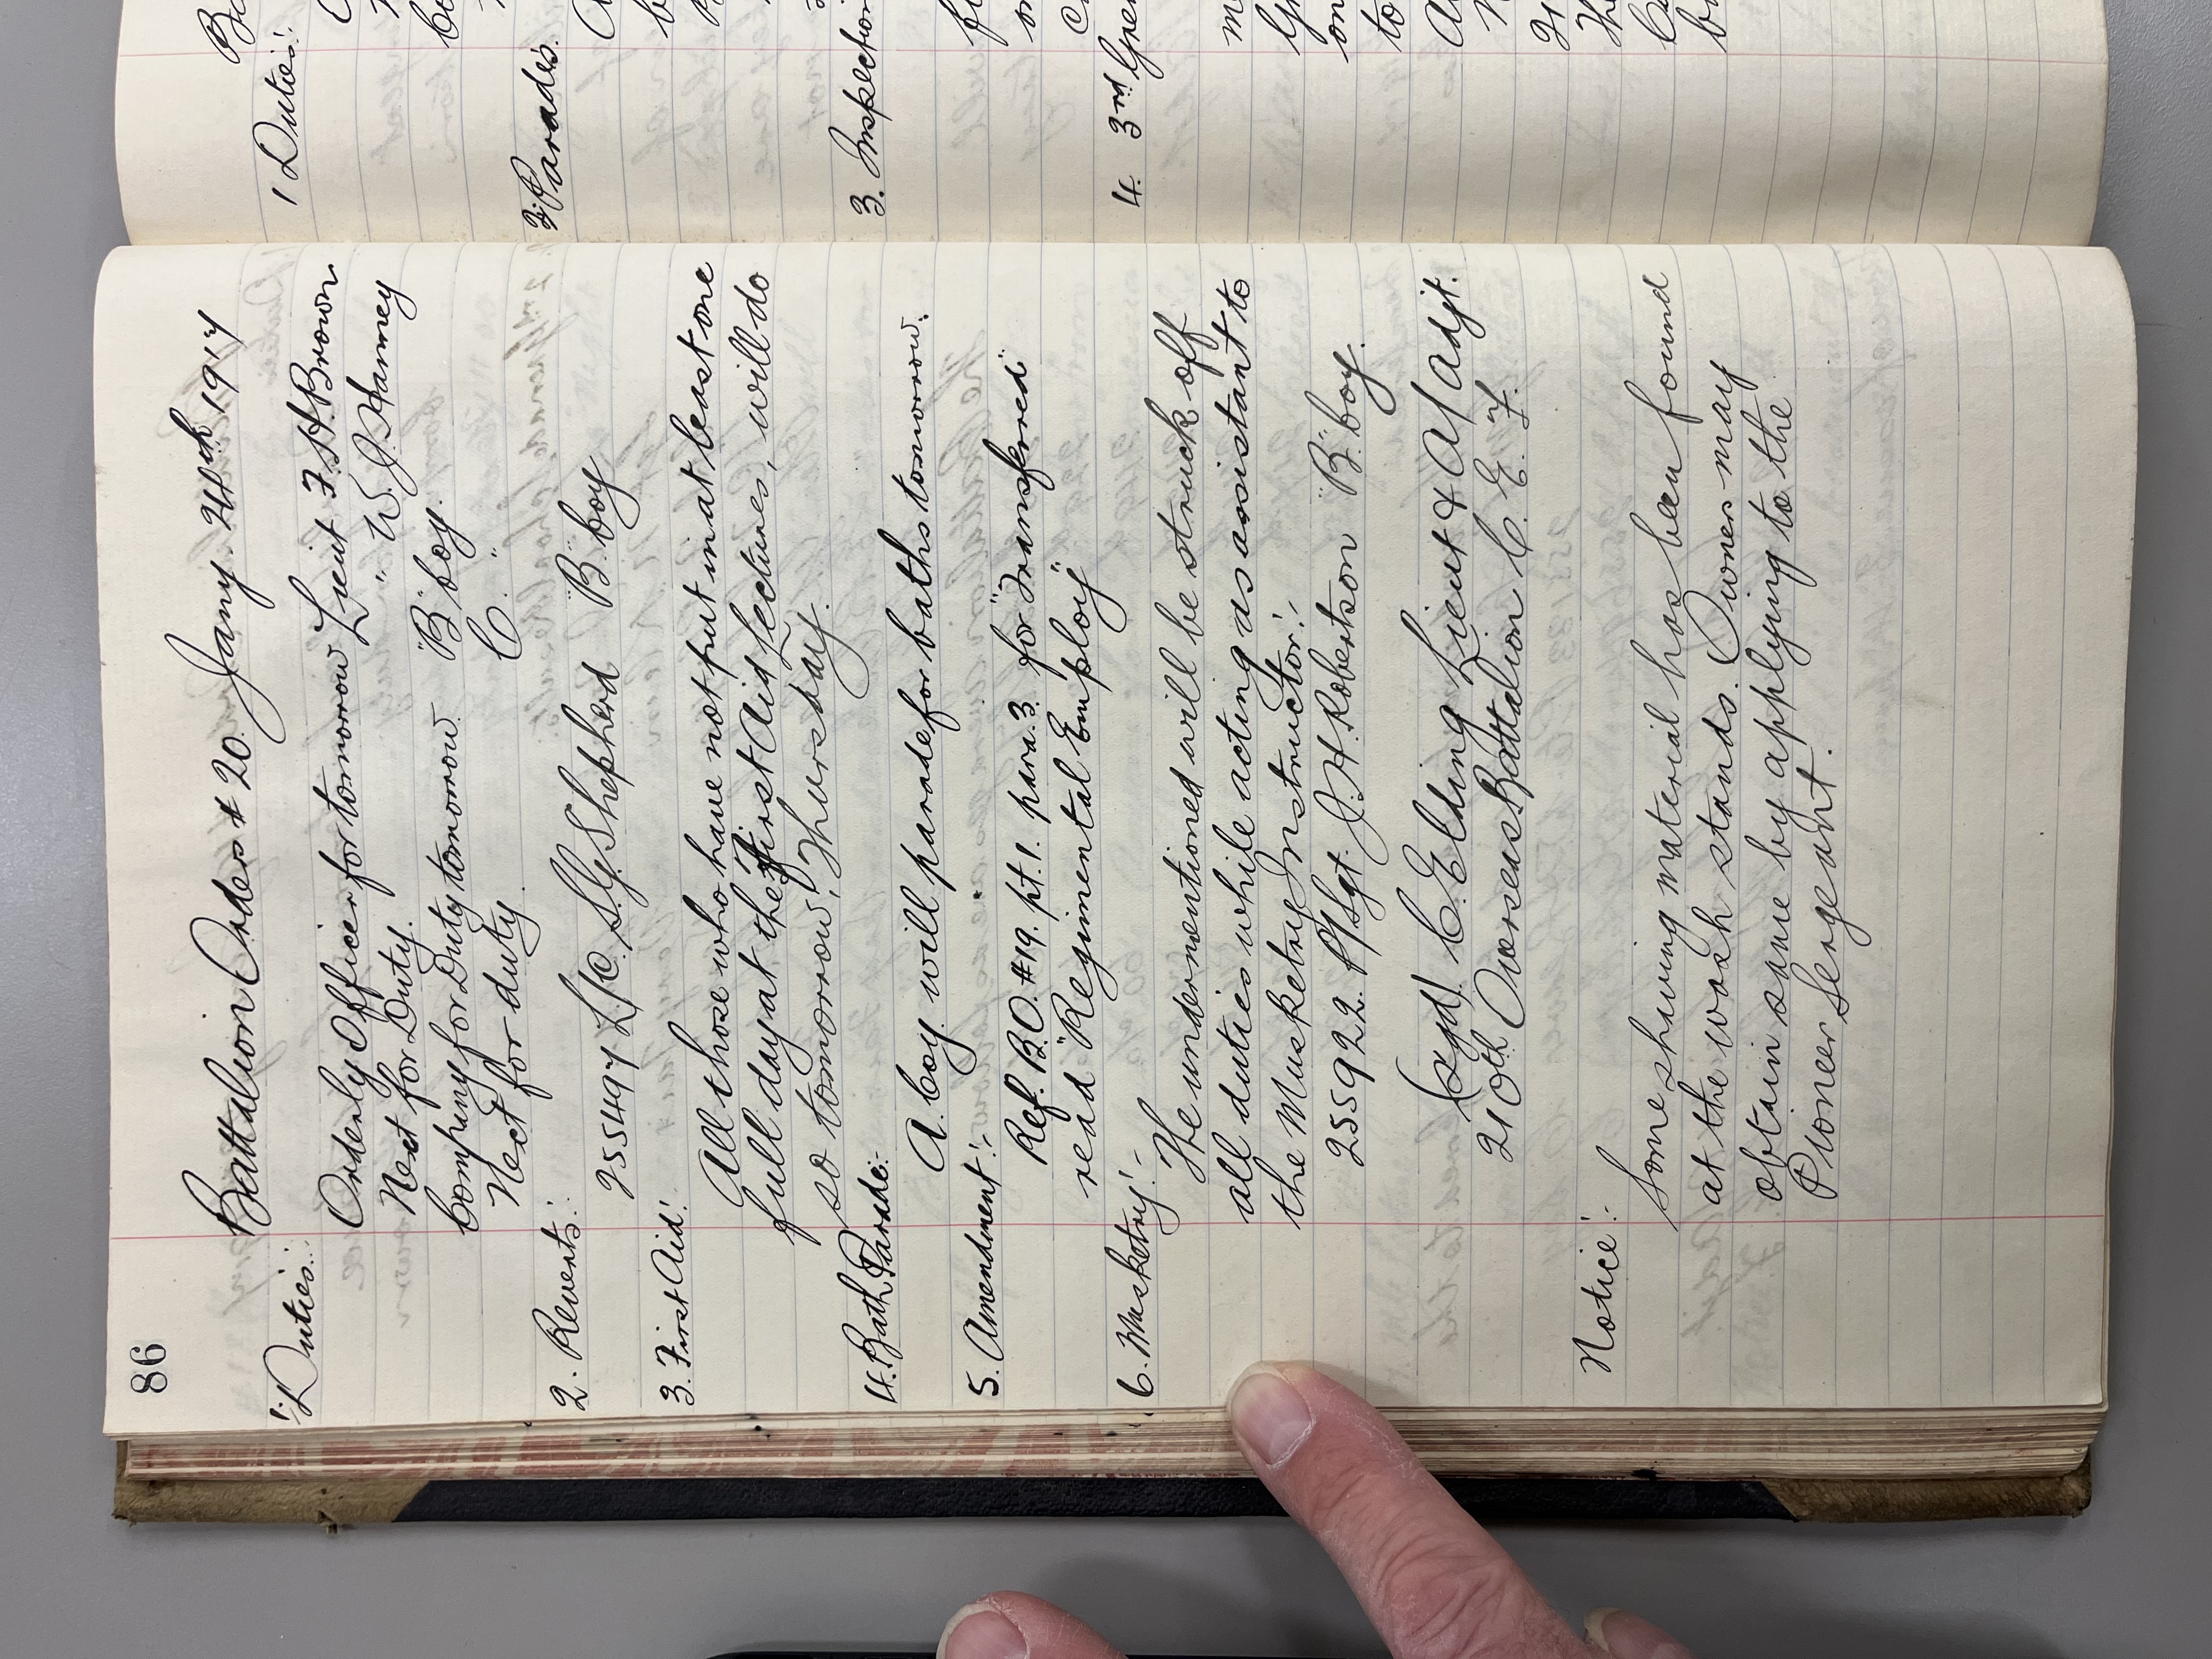 86
Battalion Orders # 20. Jany. 24th 1917
1. Duties:-
Orderly Officer for tomorrow Lieut F. H. Brown
Next for Duty. " W. J. Hanney
Company for Duty tomorrow. "B" Coy.
Next for duty "C"
2. Reverts:-
255497 L/c. S. G. Shepherd "B" Coy
3. First Aid:-
All those who have not put in at least one
full day at the First Aid Lectures, will do
so tomorrow, Thursday.
4. Bath Parade:-
A. Coy. will parade for baths tomorrow.
5. Amendment:-
Ref. B.O. #19. pt. 1. para. 3 for "Transfered"
read "Regimental Employ"
6. Musketry:-
The undermentioned will be struck off
all duties while acting as assistant to
the Musketry Instructor:-
255922 P/Sgt. J. H. Robertson "B" Coy.
(sgd) C. Elding Lieut & A/Adjt.
210th Overseas Battalion C. E. F.
Notice:-
Some shaving material has been found
at the wash stands. Owners may
obtain same by applying to the
Pioneer Sergeant.
1 Duties:-
2. Parades:-
3. Inspection
4. 3rd